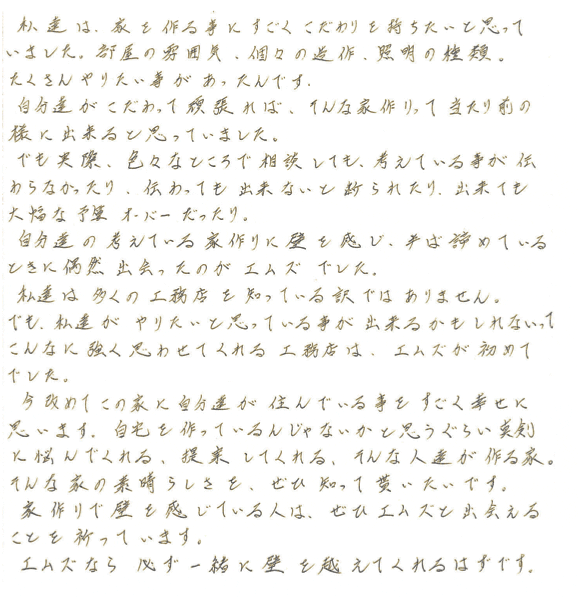 私達は、家を作る事にすごくこだわりを持ちたいと思って
いました。部屋の雰囲気、個々の造作、照明の種類。
たくさんやりたい事があったんです。
自分達がこだわって頑張れば、そんな家作りって当たり前の
様に出来ると思っていました。
でも実際、色々なところで相談しても、考えている事が伝
わらなかったり、伝わっても出来ないと断られたり、出来ても
大幅な予算オーバーだったり。
自分達の考えている家作りに壁を感じ、半ば諦めている
ときに偶然出会ったのがエムズでした。
私達は多くの工務店を知っている訳ではありません。
でも、私達がやりたいと思っている事が出来るかもしれないって
こんなに強く思わせてくれる工務店は、エムズが初めて
でした。
今改めてこの家に自分達が住んでいる事をすごく幸せに
思います。自宅を作っているんじゃないかと思うぐらい真剣
に悩んでくれる、提案してくれる、そんな人達が作る家。
そんな家の素晴らしさを、ぜひ知って貰いたいです。
家作りで壁を感じている人は、ぜひエムズと出会える
ことを祈っています。
エムズなら必ず一緒に壁を越えてくれるはずです。